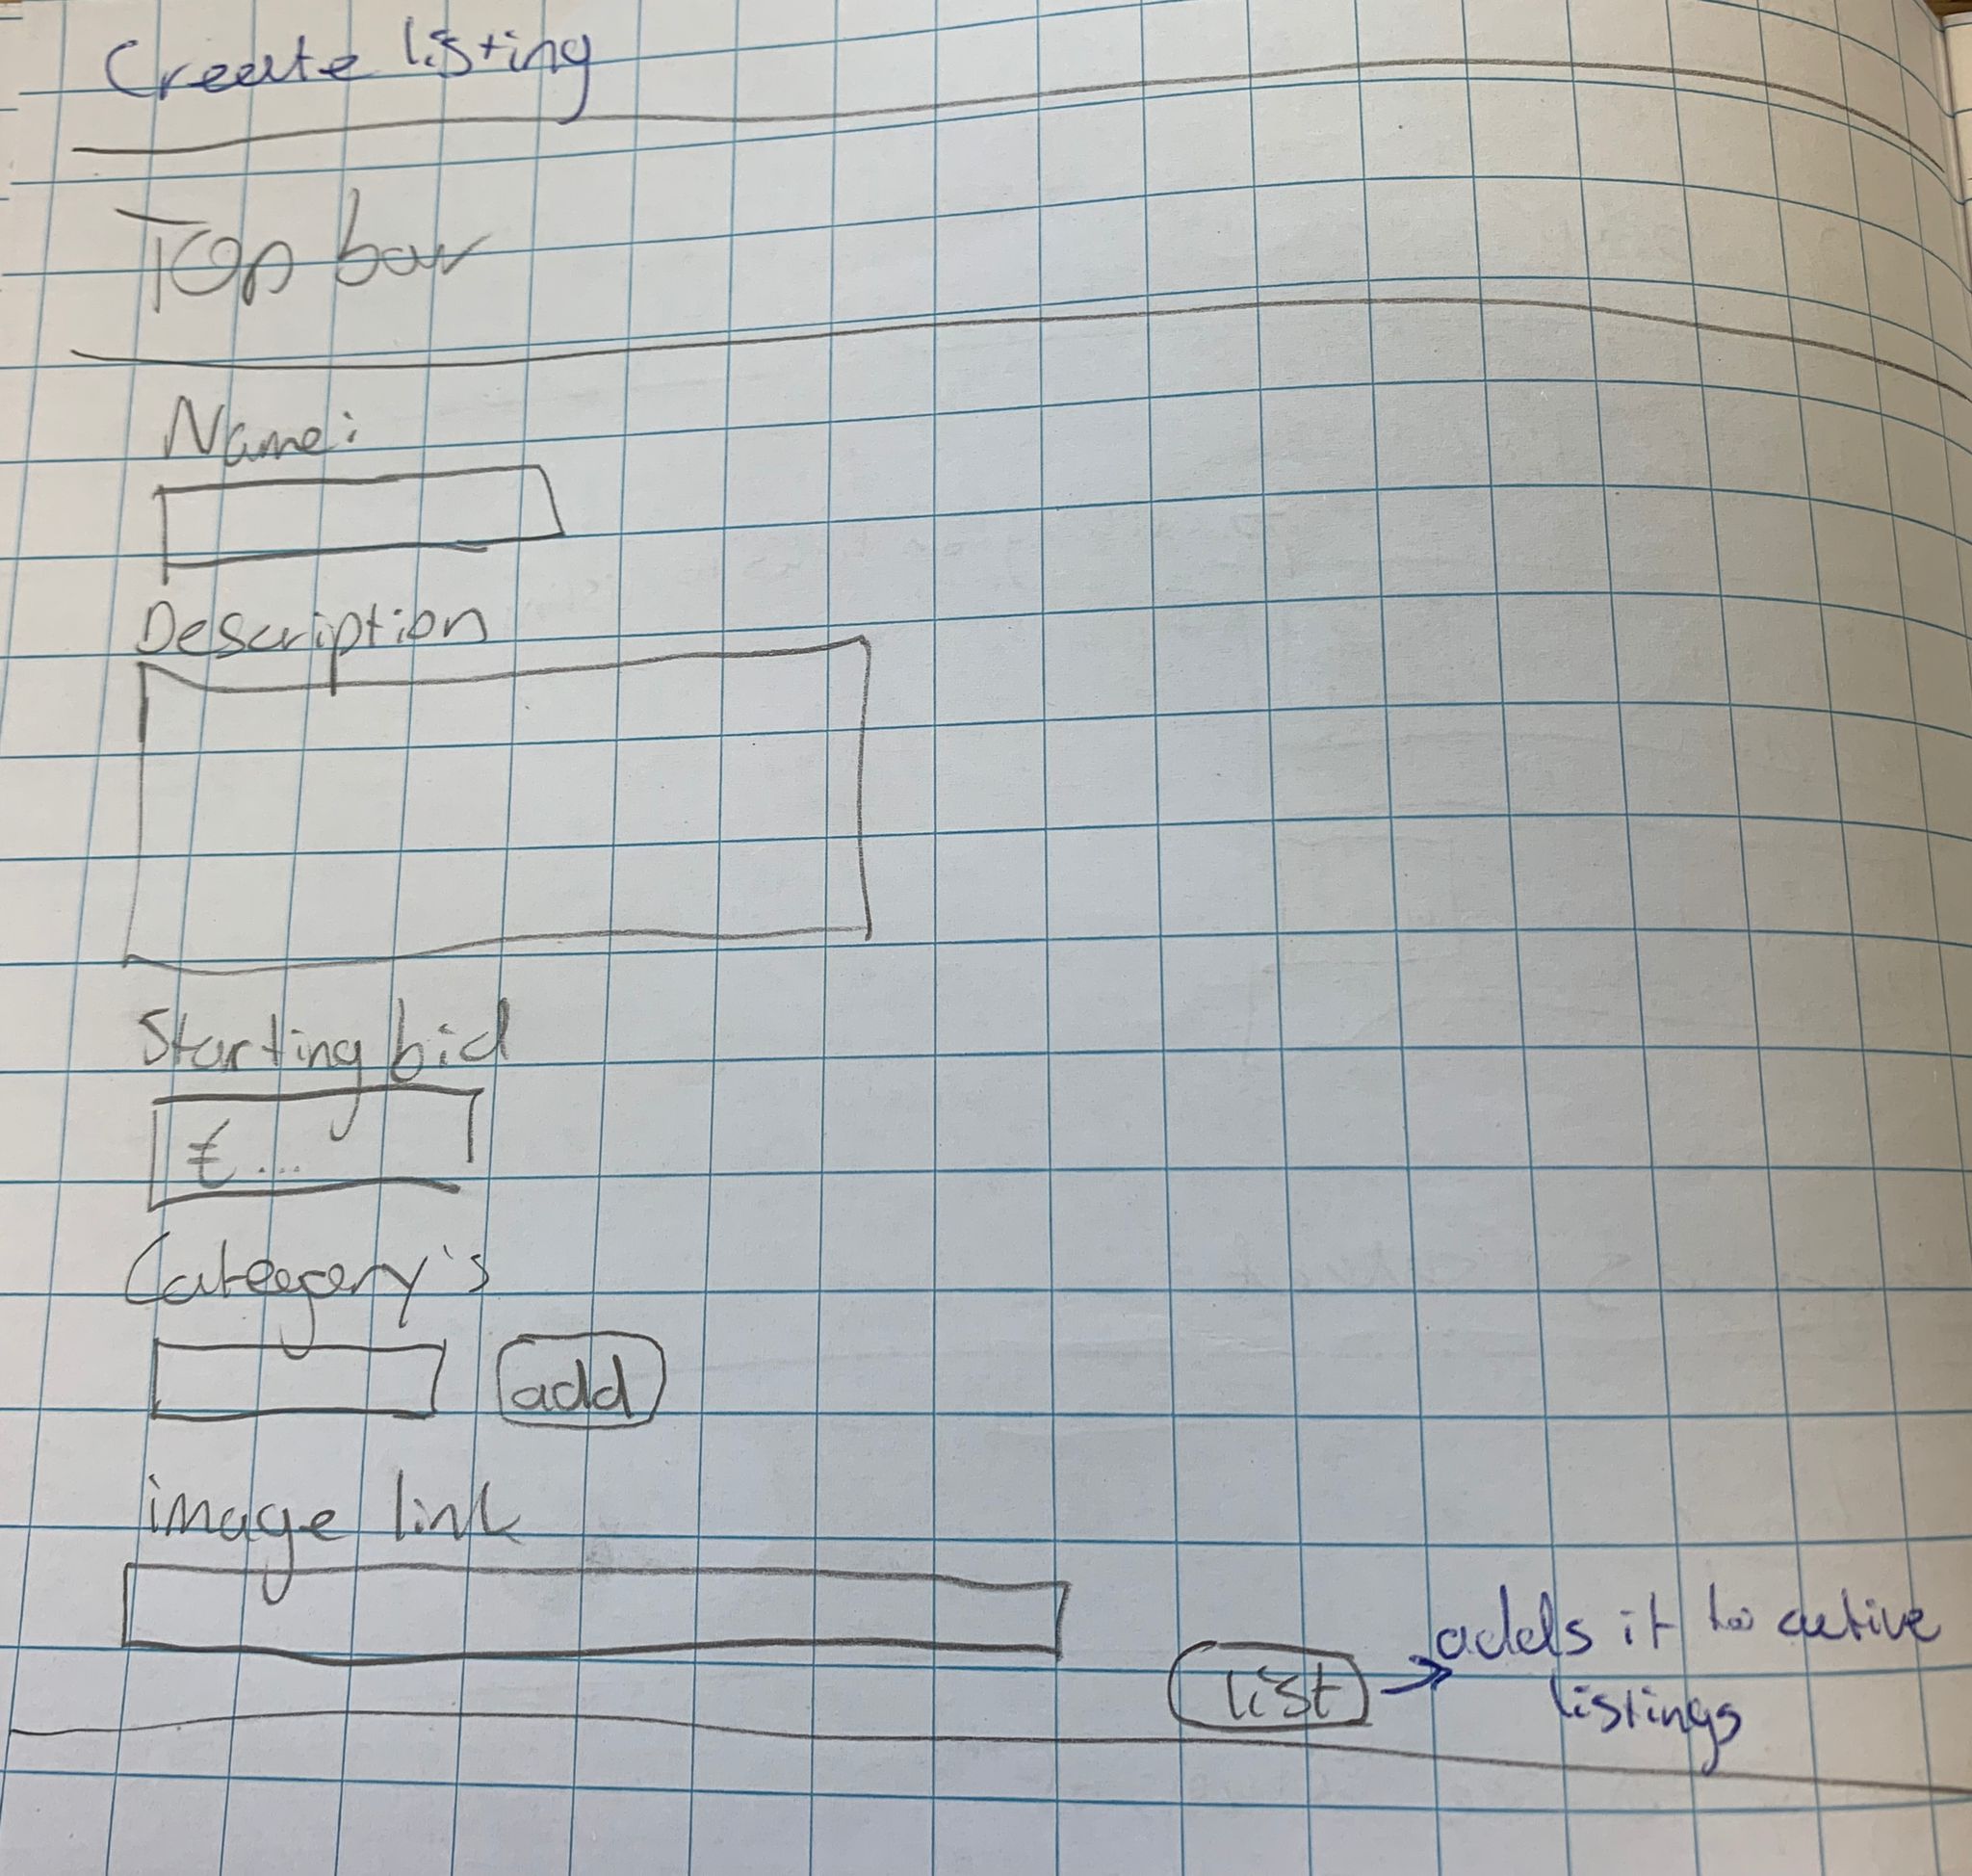 Create listing
Top bar
Name:
Description
Starting bid
€...
Category's
add
image link
list → adds it to active
listings